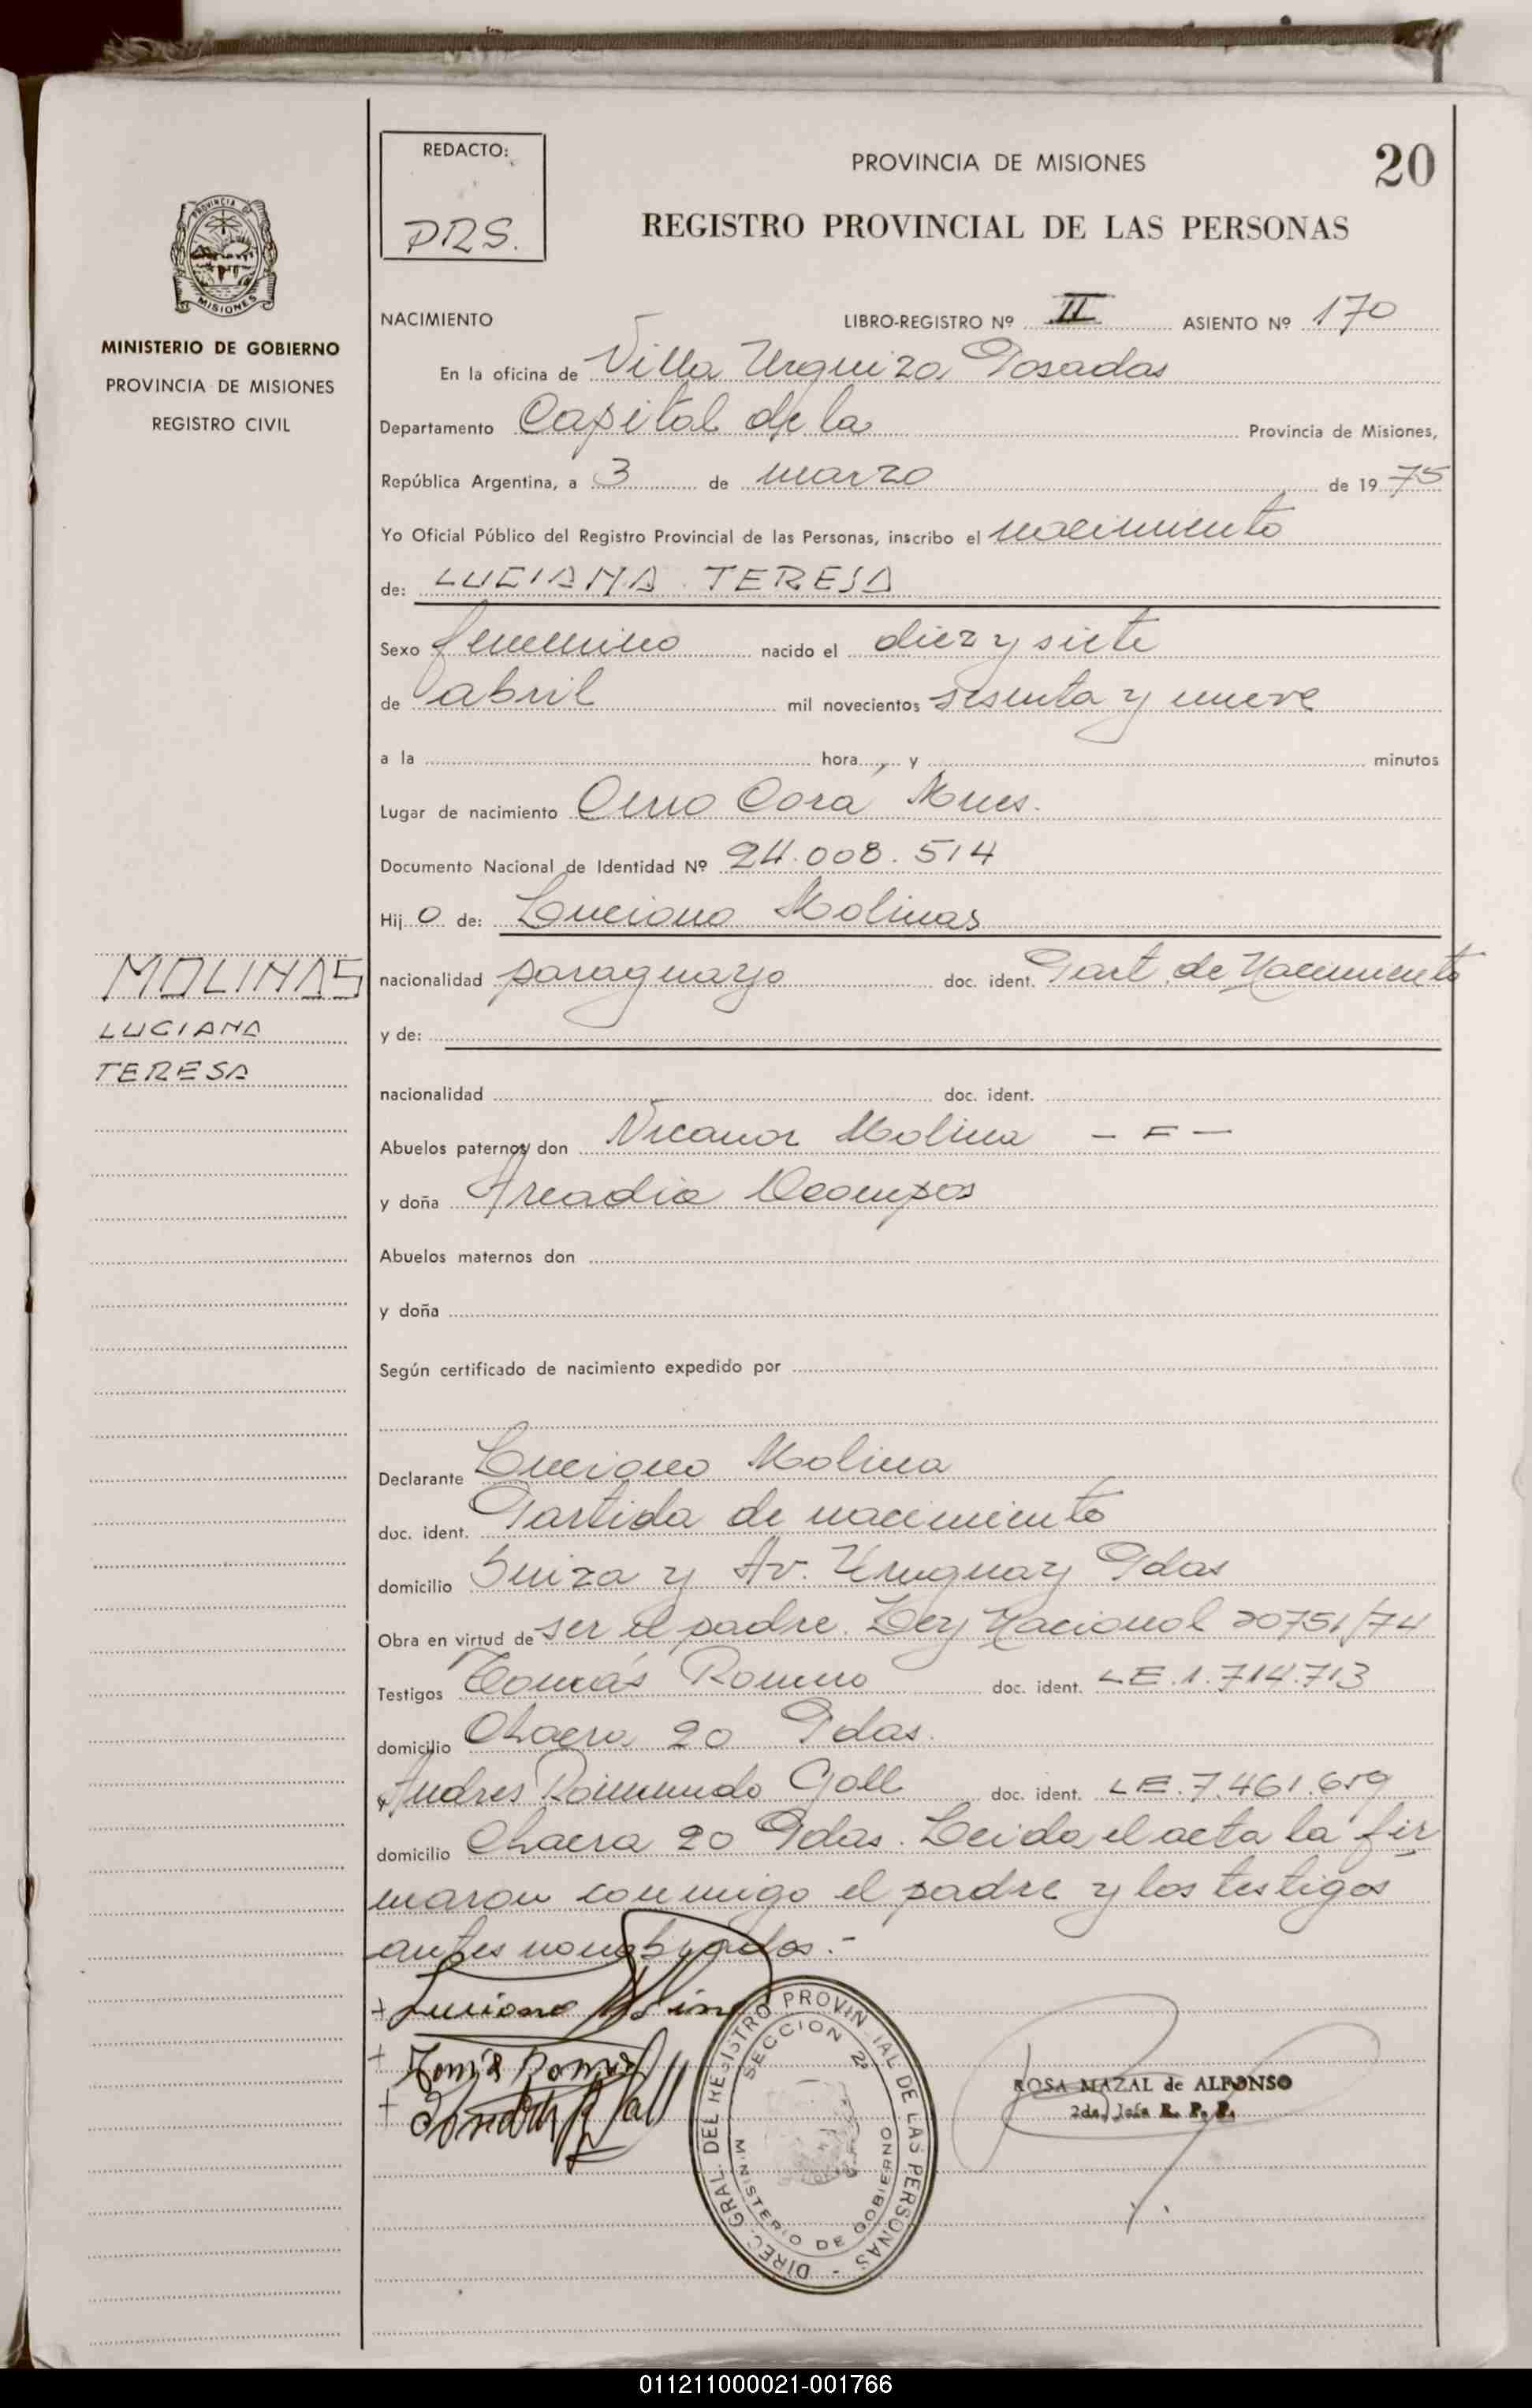 REDACTO:
PRS.
PROVINCIA DE MISIONES
20
REGISTRO PROVINCIAL DE LAS PERSONAS
PROVINCIA DE
MISIONES
MINISTERIO DE GOBIERNO
PROVINCIA DE MISIONES
REGISTRO CIVIL
NACIMIENTO LIBRO-REGISTRO Nº II ASIENTO Nº 170
En la oficina de Villa Urquiza Posadas
Departamento Capital de la Provincia de Misiones,
República Argentina, a 3 de marzo de 1975
Yo Oficial Público del Registro Provincial de las Personas, inscribo el nacimiento
de: LUCIANA TERESA
Sexo femenino nacido el diez y siete
de abril mil novecientos sesenta y nueve
a la hora, y minutos
Lugar de nacimiento Cerro Corá Mnes.
Documento Nacional de Identidad Nº 24.008.514
Hij o de: Luciano Molinas
MOLINAS
LUCIANA
TERESA
nacionalidad paraguayo doc. ident. Part. de Nacimiento
y de:
nacionalidad doc. ident.
Abuelos paternos don Nicanor Molina — F —
y doña Arcadia Docampos
Abuelos maternos don
y doña
Según certificado de nacimiento expedido por
Declarante Luciano Molina
doc. ident. Partida de nacimiento
domicilio Suiza y Av. Uruguay Pdas
Obra en virtud de ser el padre. Ley Nacional 20751/74
Testigos Tomás Romero doc. ident. LE.1.714.713
domicilio Chacra 20 Pdas.
y Andres Raimundo Goll doc. ident. LE.7.461.659
domicilio Chacra 20 Pdas. Leida el acta la fir
maron conmigo el padre y los testigos
antes nombrados.-
+ Luciano Molina
+ Tomás Romero
+
DIREC. GRAL. DEL REGISTRO PROVINCIAL DE LAS PERSONAS -
SECCION 2ª
MINISTERIO DE GOBIERNO
ROSA MAZAL de ALFONSO
2da. Jefa R. P. P.
011211000021-001766